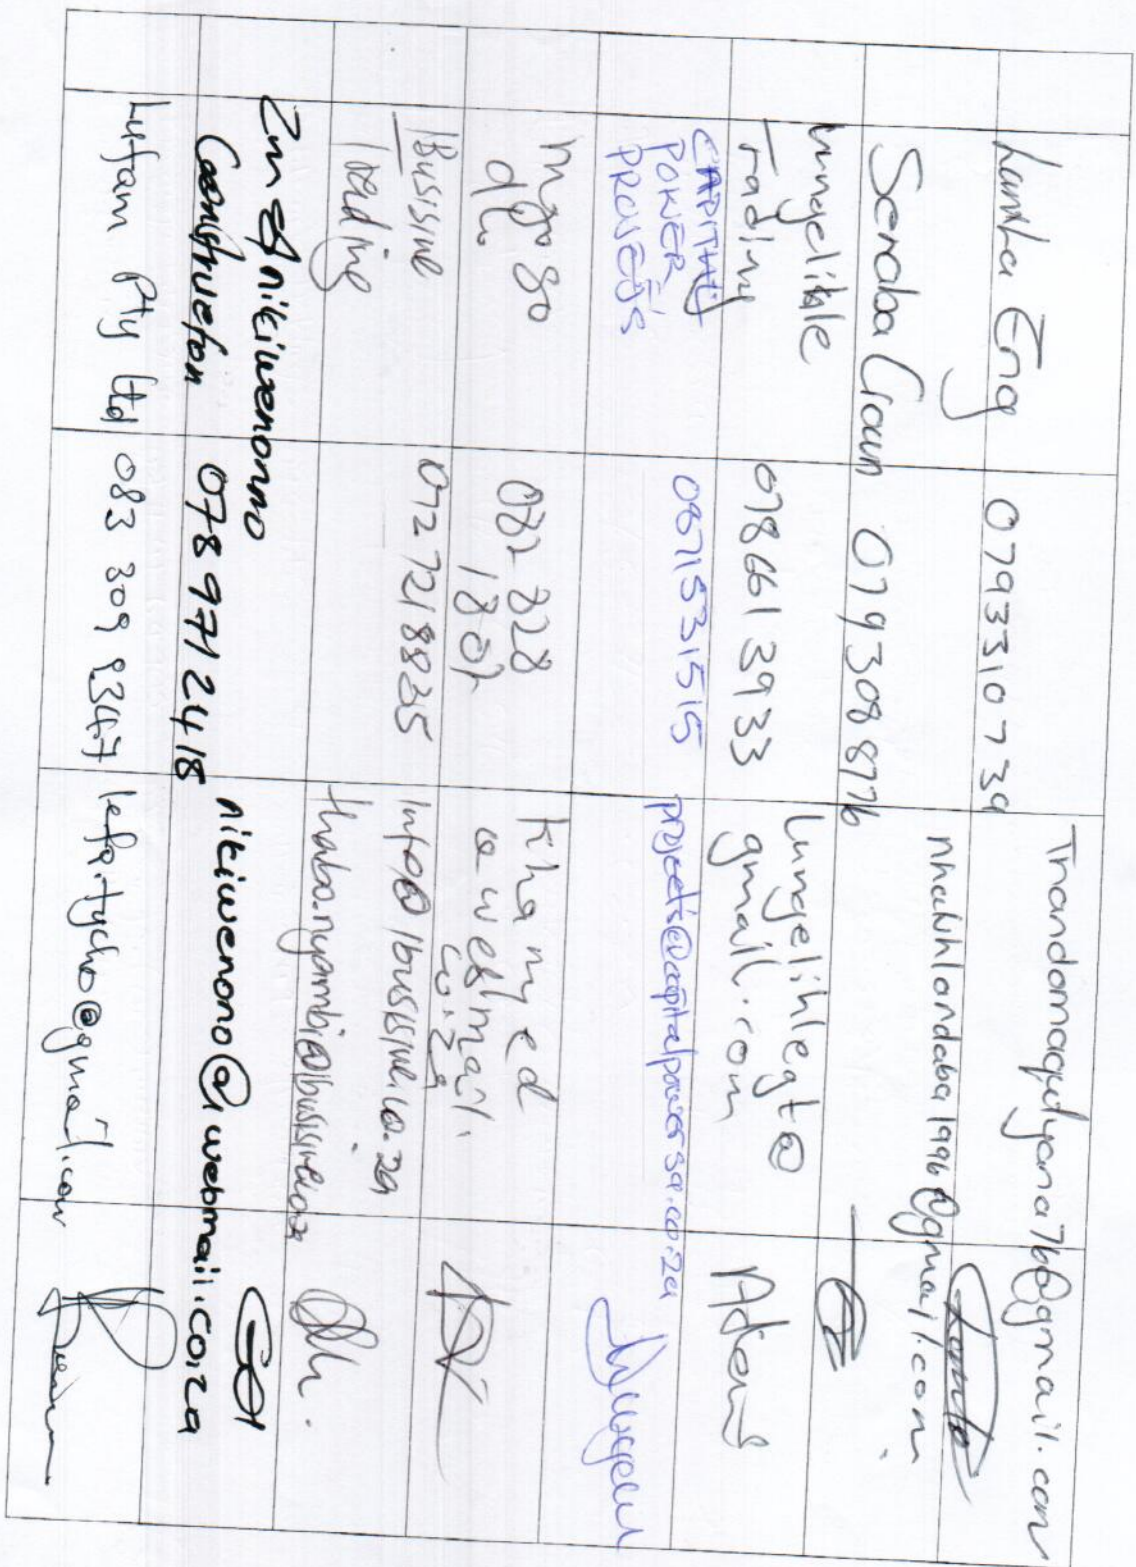 Lamla Eng 0793310739 Thandomaqutyana76@gmail.com
Sendaba Crown 0793088776 nhlelohlondaba1996@gmail.com
Lungelihle 0786613933 Lungelihlegt@
Trading gmail.com
CAPITAL 0871531515 projects@capitalpowersa.co.za
POWER
PROJECTS
082 828 khanyed
@webmail.
co.za
Ibusisiwe 0727218835 info@ibusisiwe.co.za
Trading thaba.nyambi@ibusisiwe.co.za
nikiwenono
Construction 078 971 2418 nikiwenono@webmail.co.za
Lefam Pty Ltd 083 309 9347 lefa.tycho@gmail.com